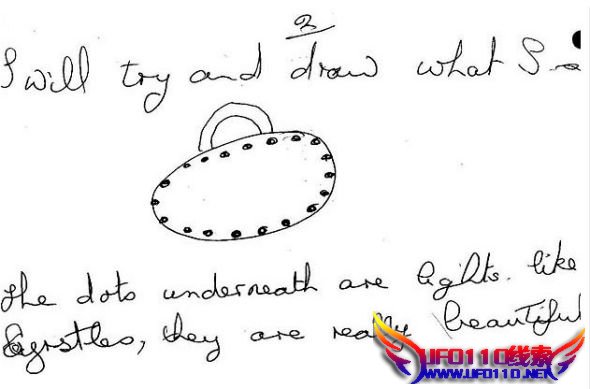 2
I will try and draw what I
the dots underneath are lights. like
Cyrstles, they are really beautiful
UFO110线索
WWW.UFO110.NET